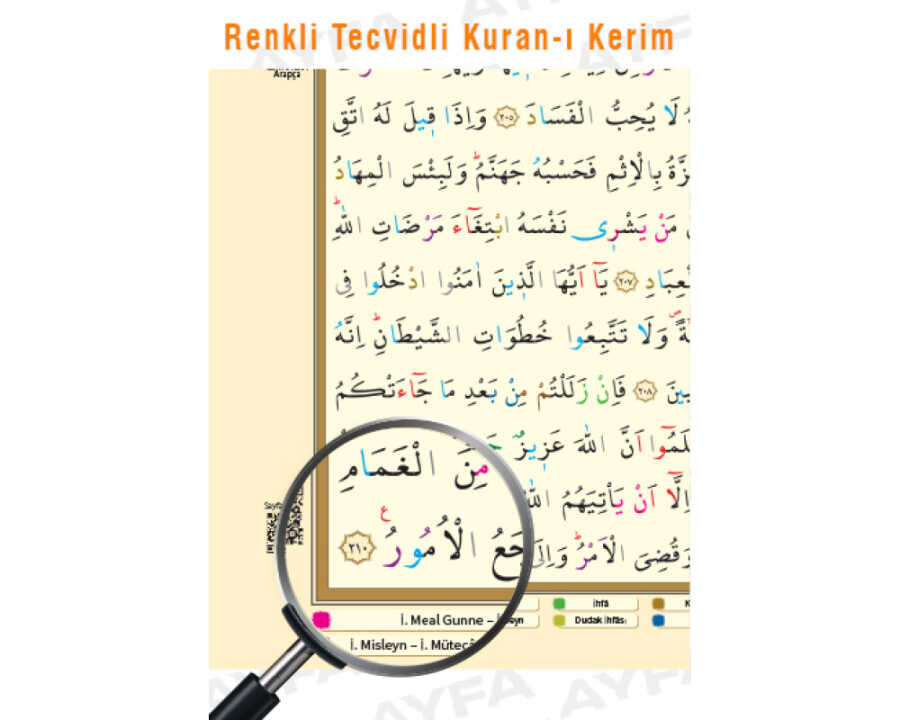 Renkli Tecvidli Kuran-ı Kerim
Arapça
لَا يُحِبُّ الْفَسَادَ ﴿٢٠٥﴾ وَاِذَا قٖيلَ لَهُ اتَّقِ
بِالْاِثْمِ فَحَسْبُهُ جَهَنَّمُ وَلَبِئْسَ الْمِهَادُ
مَنْ يَشْرٖى نَفْسَهُ ابْتِغَٓاءَ مَرْضَاتِ اللّٰهِ
﴿٢٠٧﴾ يَٓا اَيُّهَا الَّذٖينَ اٰمَنُوا ادْخُلُوا فِى
وَلَا تَتَّبِعُوا خُطُوَاتِ الشَّيْطَانِ اِنَّهُ
﴿٢٠٨﴾ فَاِنْ زَلَلْتُمْ مِنْ بَعْدِ مَا جَٓاءَتْكُمُ
اَنَّ اللّٰهَ عَزٖيزٌ
مِنَ الْغَمَامِ
اِلَّٓا اَنْ يَأْتِيَهُمُ اللّٰهُ
وَقُضِىَ الْاَمْرُ وَاِلَى
جَعُ الْاُمُورُ ﴿٢١٠﴾
ع
Sayfa
İhfâ
İ. Meal Gunne –
Dudak İhfâsı
İ. Misleyn – İ.
AYFA
AYFA